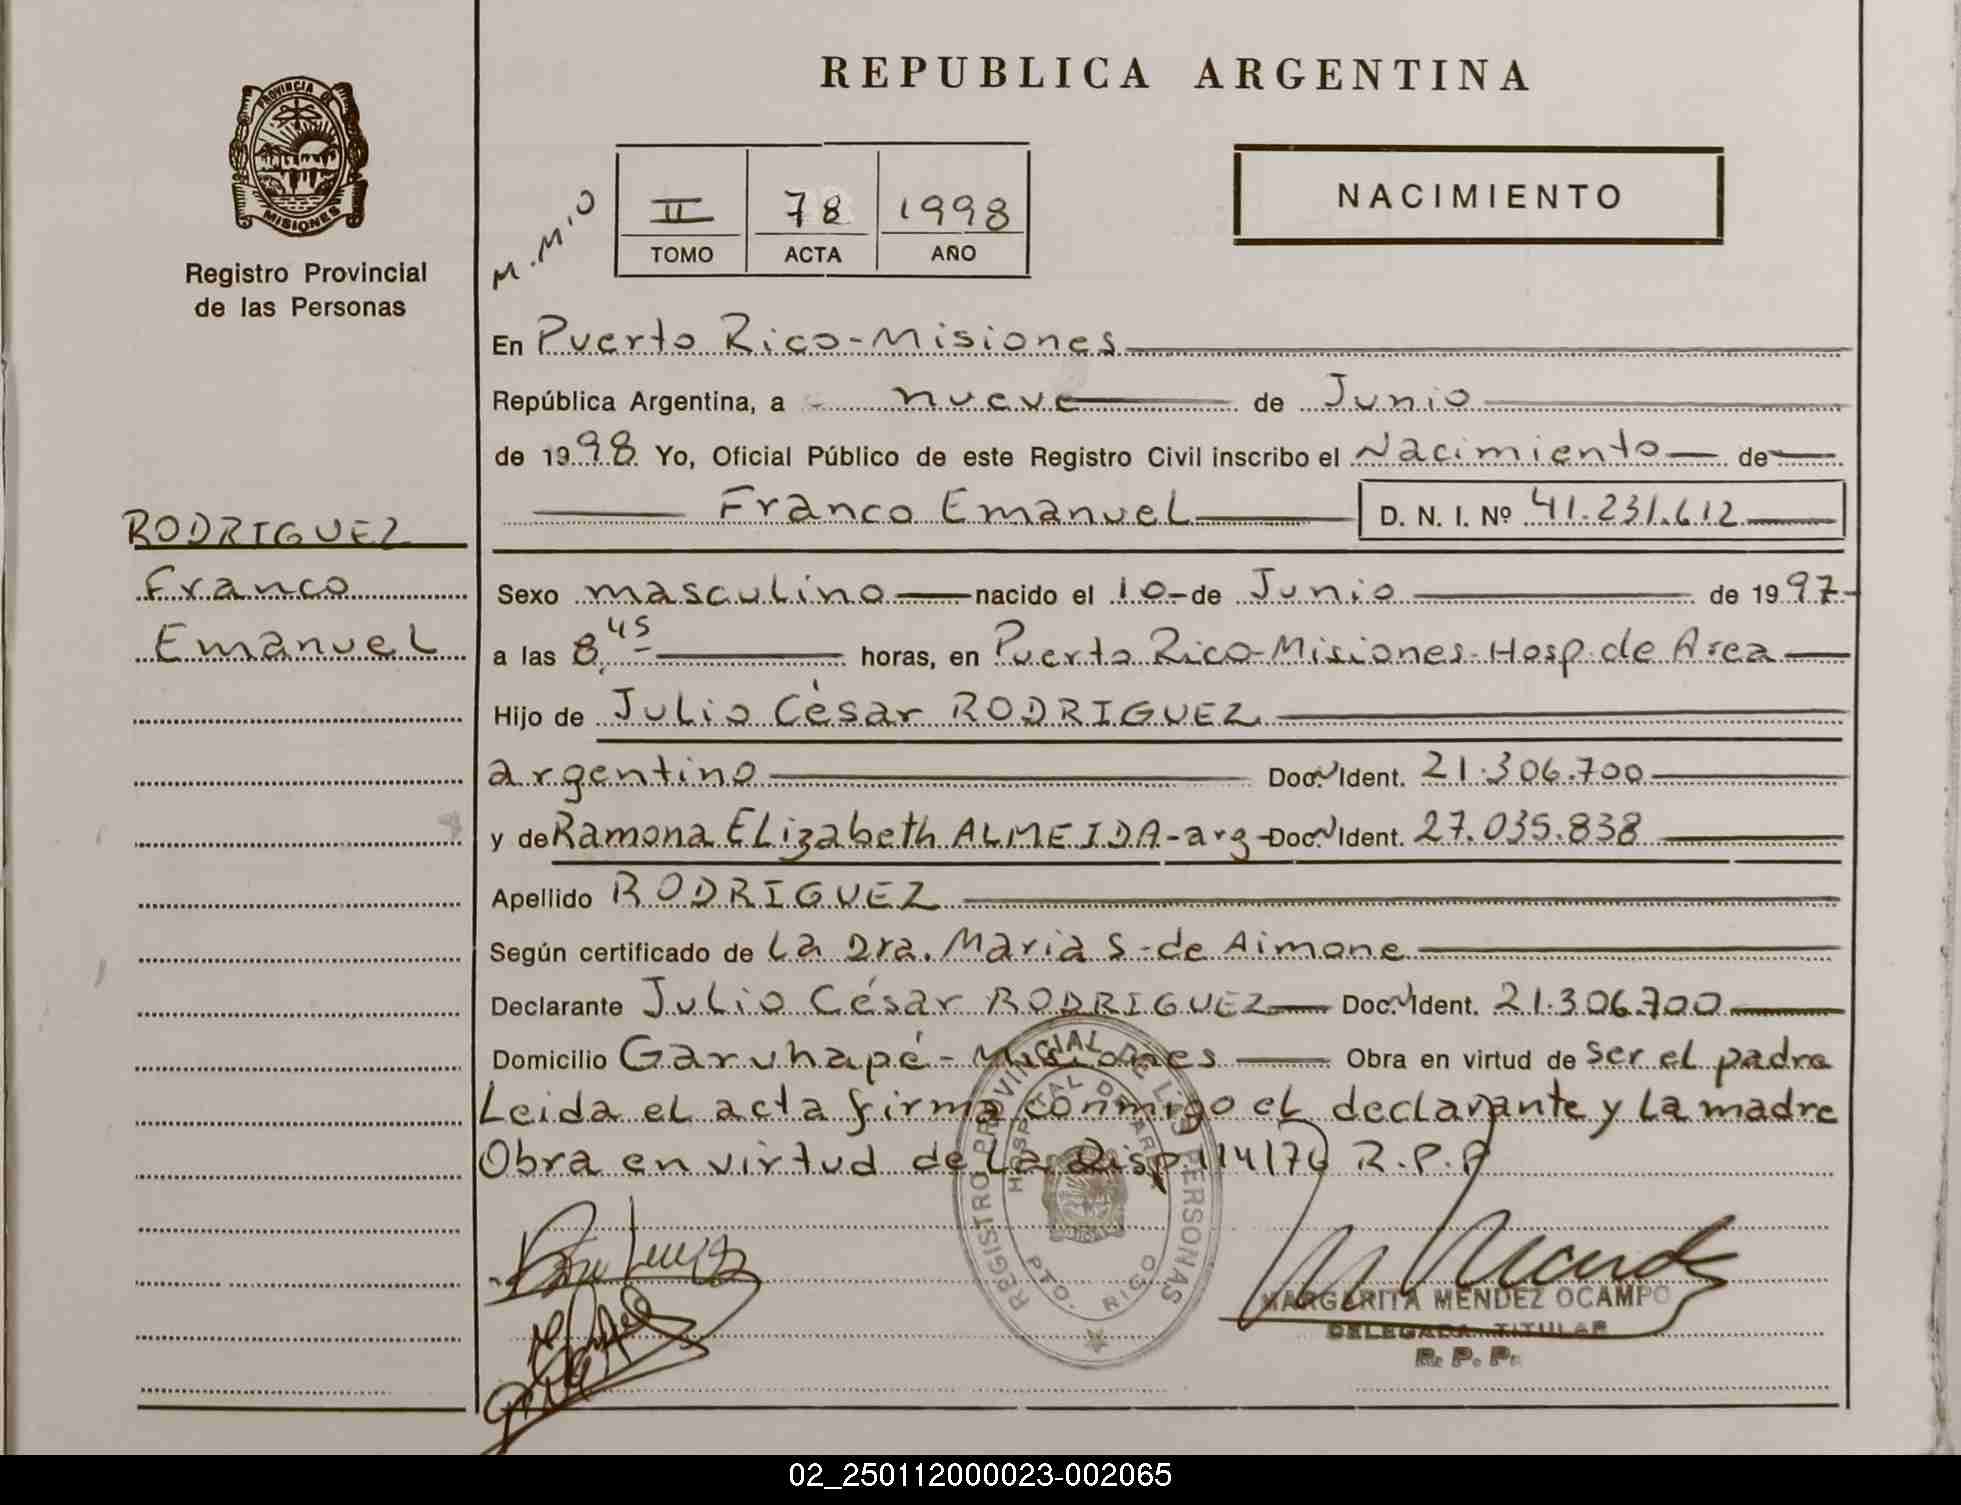 REPUBLICA ARGENTINA
PROVINCIA DE
MISIONES
Registro Provincial
de las Personas
M.M.O
II 78 1998
TOMO ACTA AÑO
NACIMIENTO
En Puerto Rico-Misiones
República Argentina, a nueve de Junio
de 1998 Yo, Oficial Público de este Registro Civil inscribo el Nacimiento de
Franco Emanuel D. N. I. Nº 41.231.612
RODRIGUEZ
Franco
Emanuel
Sexo masculino nacido el 10 de Junio de 1997
a las 8,45 horas, en Puerto Rico-Misiones-Hosp. de Area
Hijo de Julio César RODRIGUEZ
argentino Doc. Ident. 21.306.700
y de Ramona ELizabeth ALMEIDA-arg-Doc. Ident. 27.035.838
Apellido RODRIGUEZ
Según certificado de La Dra. Maria S. de Aimone
Declarante Julio César RODRIGUEZ Doc. Ident. 21.306.700
Domicilio Garuhapé-Misiones Obra en virtud de ser el padre
Leida el acta firma conmigo el declarante y La madre
Obra en virtud de La Disp 114/76 R.P.P
REGISTRO PROVINCIAL DE LAS PERSONAS
HOSPITAL DE AREA
PTO. RICO
MARGARITA MENDEZ OCAMPO
DELEGADA TITULAR
R. P. P.
02_250112000023-002065